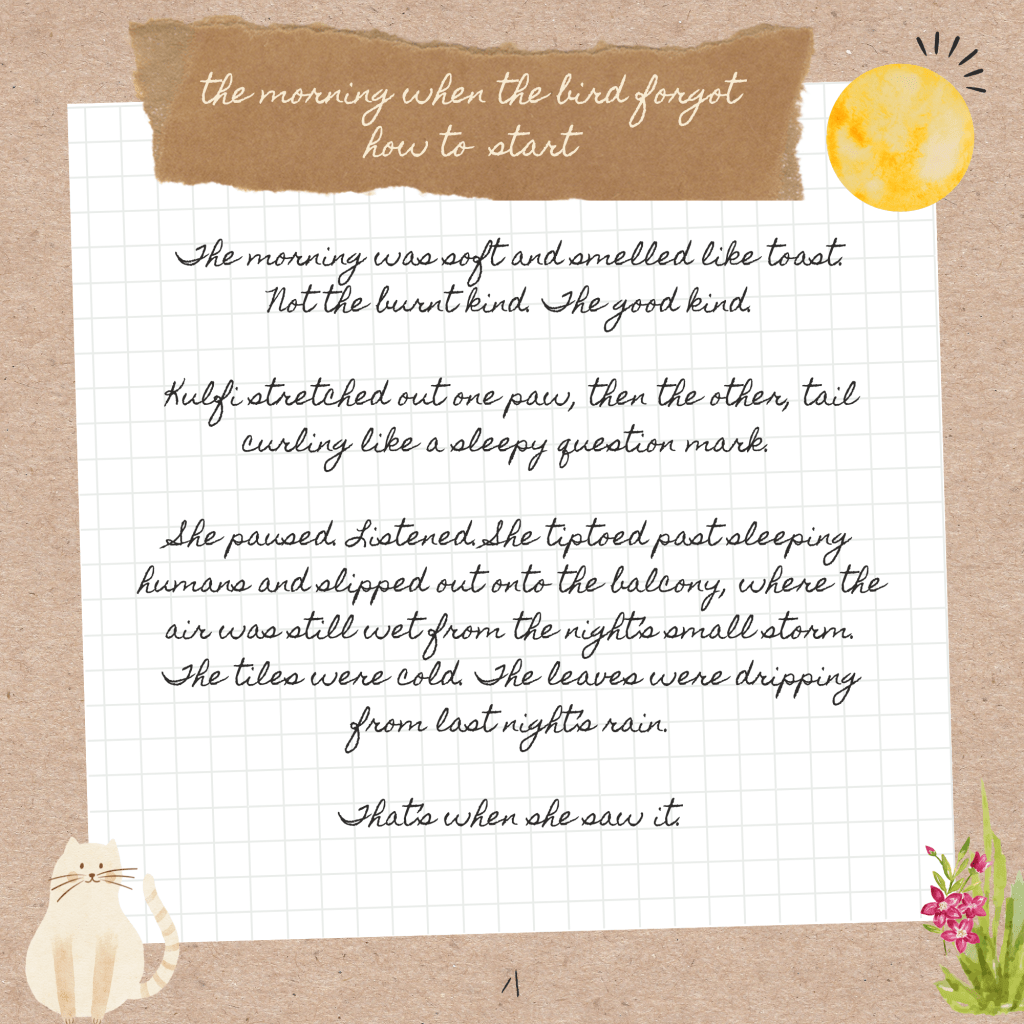 the morning when the bird forgot
how to start
The morning was soft and smelled like toast.
Not the burnt kind. The good kind.
Kulfi stretched out one paw, then the other, tail
curling like a sleepy question mark.
She paused. Listened. She tiptoed past sleeping
humans and slipped out onto the balcony, where the
air was still wet from the night's small storm.
The tiles were cold. The leaves were dripping
from last night's rain.
That's when she saw it.